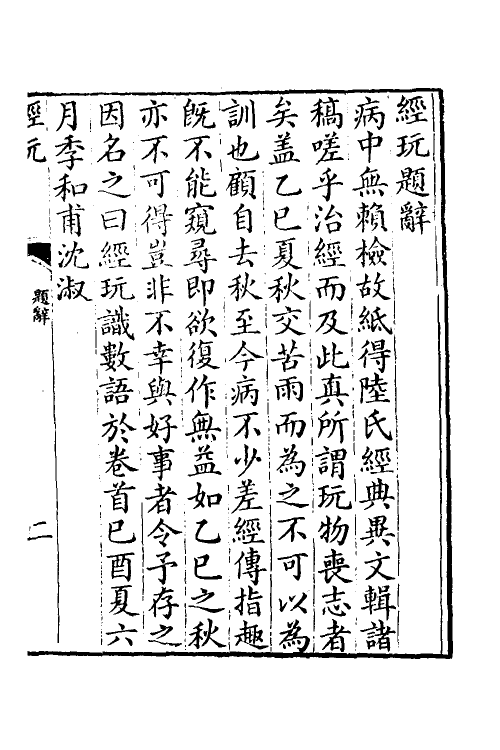 經玩題辭
病中無賴檢故紙得陸氏經典異文輯諸
稿嗟乎治經而及此真所謂玩物喪志者
矣盖乙巳夏秋交苦雨而為之不可以為
訓也顧自去秋至今病不少差經傳指趣
旣不能窺尋即欲復作無益如乙巳之秋
亦不可得豈非不幸與好事者令予存之
因名之曰經玩識數語於卷首己酉夏六
月季和甫沈淑
經玩
題辭
二